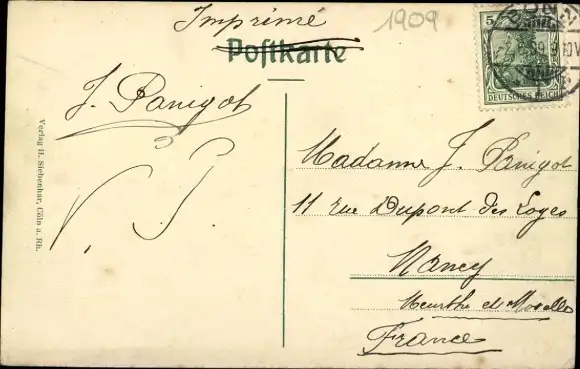 Imprimé
1909
Postkarte
5
DEUTSCHES REICH
J. Panigot
V. J.
Verlag H. Siebenhar, Cöln a. Rh.
Madame J. Panigot
11 rue Dupont des Loges
Nancy
Meurthe et Moselle
France